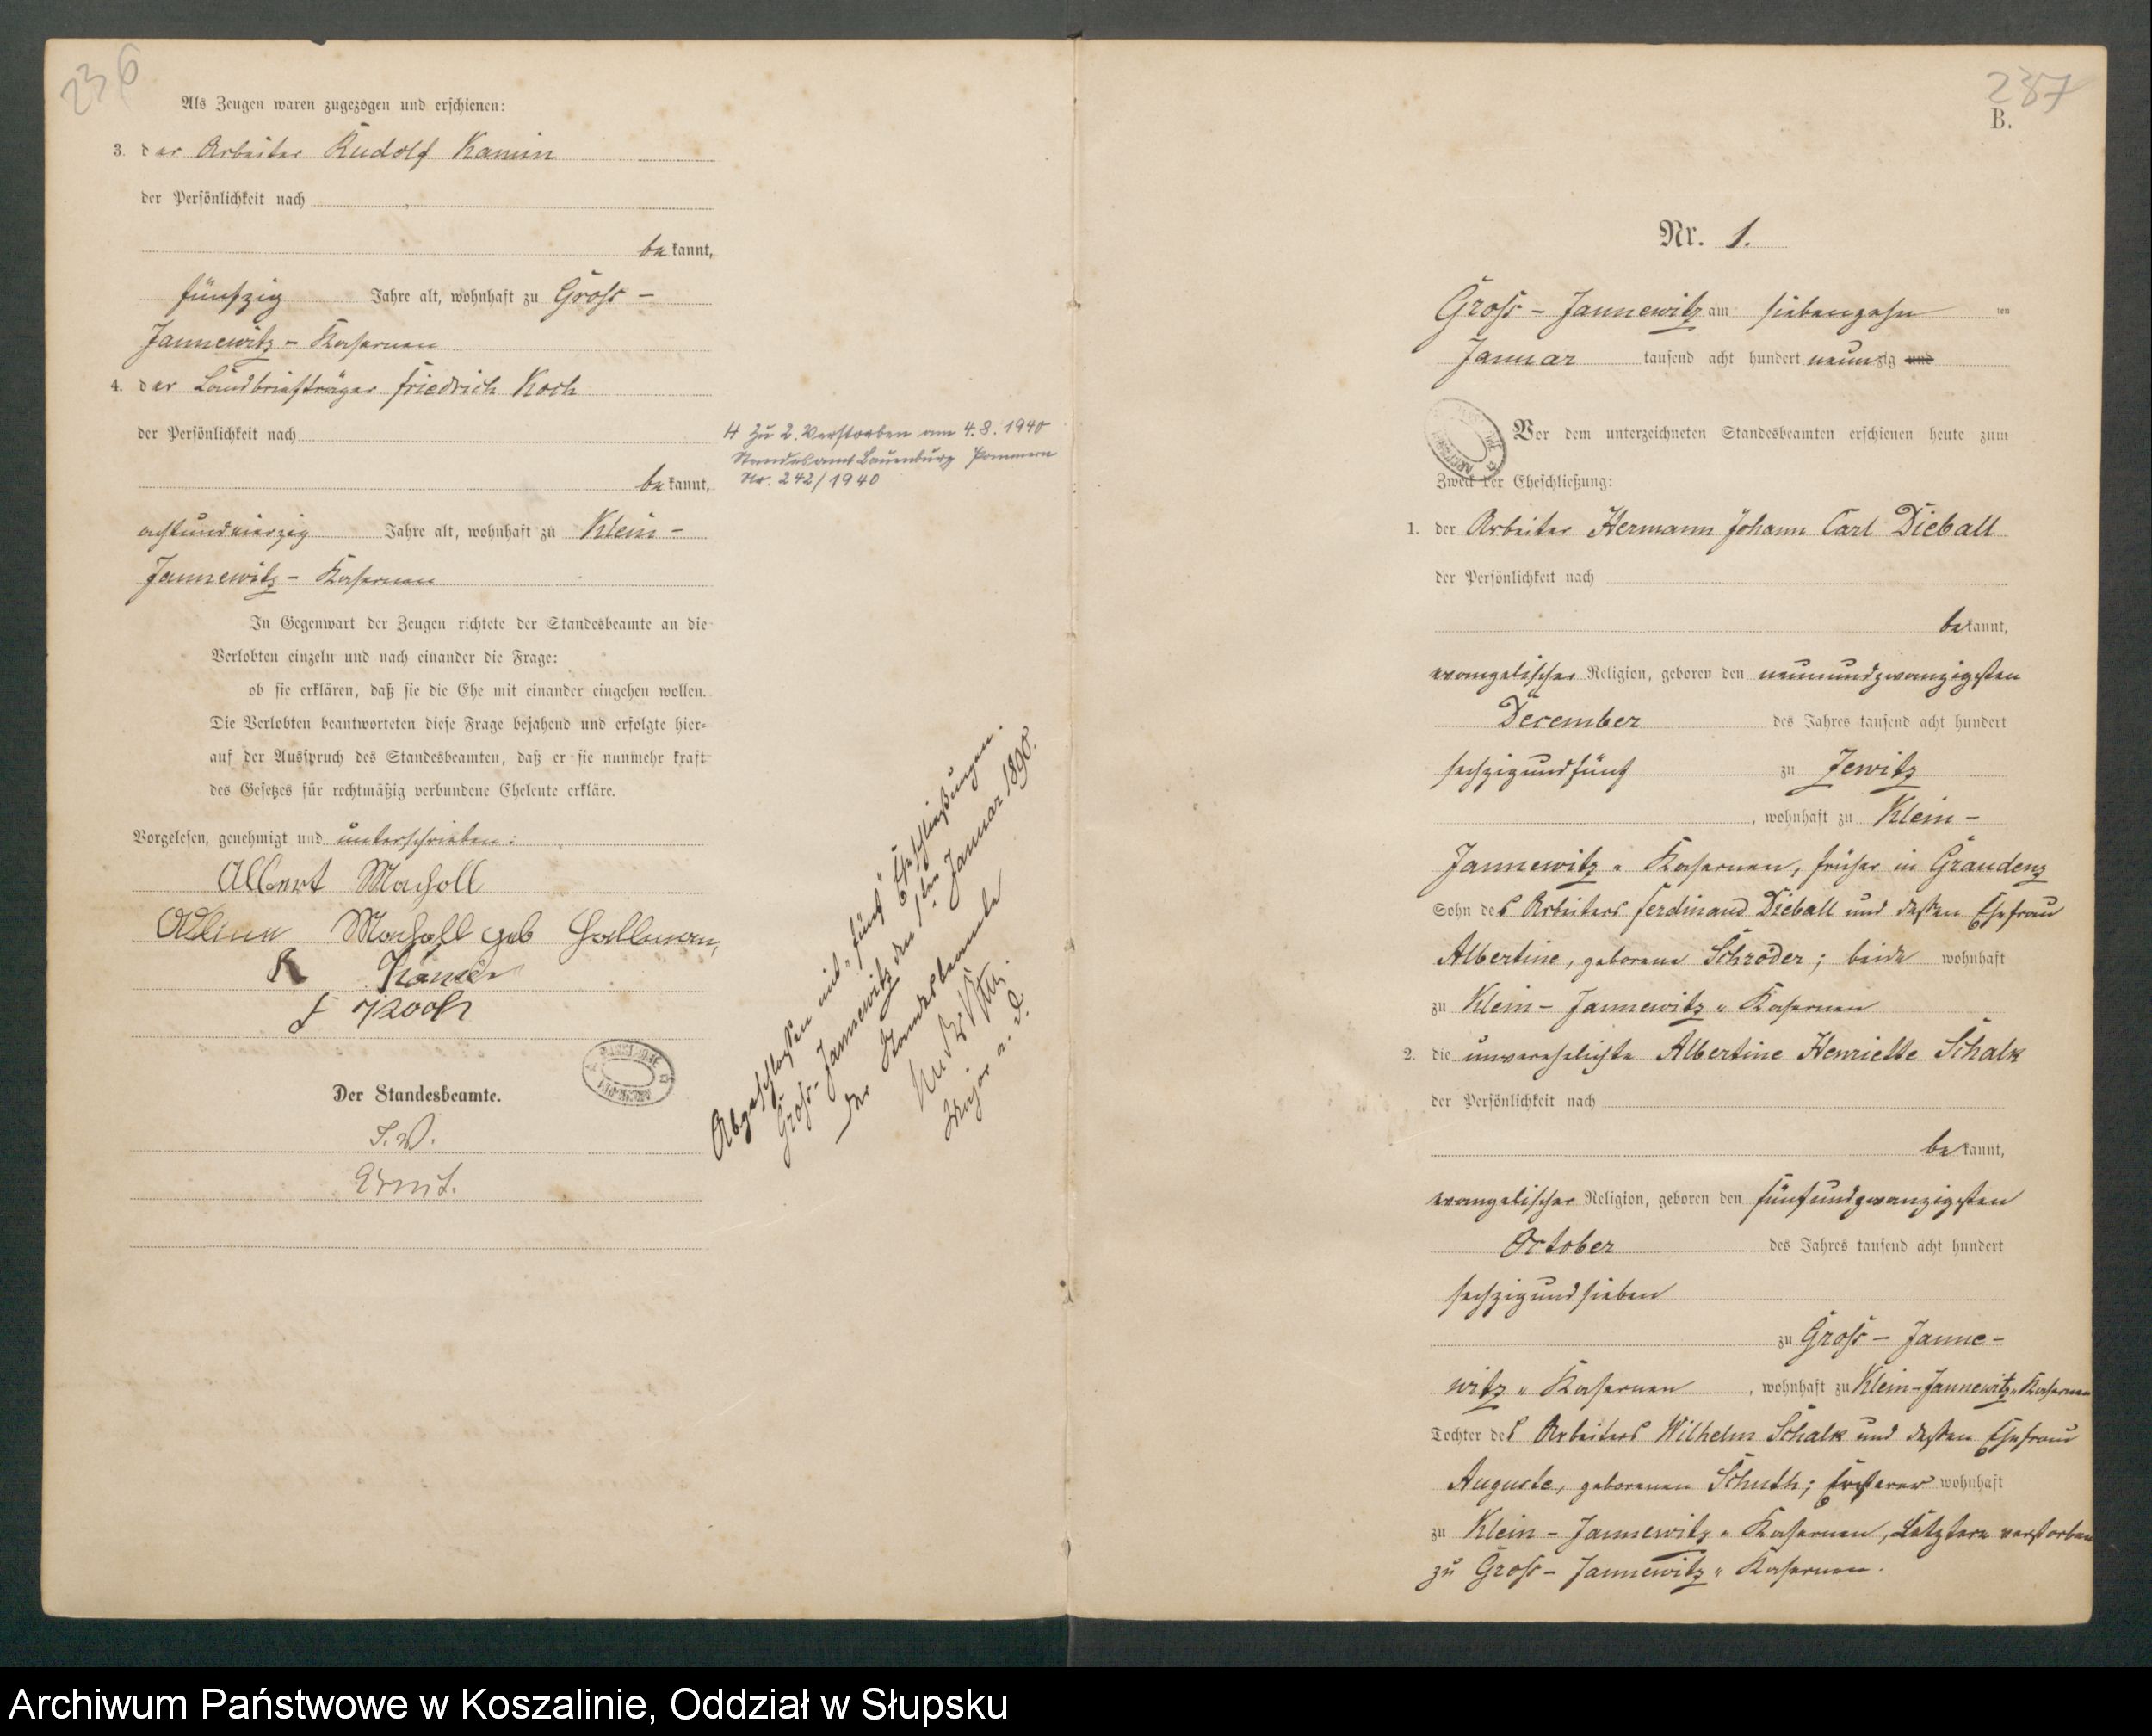 236
Als Zeugen waren zugezogen und erschienen:
3. der Arbeiter Rudolf Kamin
der Persönlichkeit nach
bekannt,
fünfzig Jahre alt, wohnhaft zu Groß-
Jannewitz-Kasernen
4. der Landbriefträger Friedrich Koch
der Persönlichkeit nach
bekannt,
achtundvierzig Jahre alt, wohnhaft zu Klein-
Jannewitz-Kasernen
In Gegenwart der Zeugen richtete der Standesbeamte an die
Verlobten einzeln und nach einander die Frage:
ob sie erklären, daß sie die Ehe mit einander eingehen wollen.
Die Verlobten beantworteten diese Frage bejahend und erfolgte hier-
auf der Ausspruch des Standesbeamten, daß er sie nunmehr kraft
des Gesetzes für rechtmäßig verbundene Eheleute erkläre.
Vorgelesen, genehmigt und unterschrieben:
Albert Macholl
Macholl geb
R Kamin
F Koch
Der Standesbeamte.
I. V.
H zu 2. Verstorben am 4.8.1940
Standesamt Lauenburg Pommern
Nr. 242/1940
Abgeschlossen mit "fünf" Eheschließungen.
Groß-Jannewitz den 1ten Januar 1890.
Der Standesbeamte
Major a. D.
237
B.
Nr. 1.
Groß-Jannewitz am siebenzehn ten
Januar tausend acht hundert neunzig und
Vor dem unterzeichneten Standesbeamten erschienen heute zum
Zweck der Eheschließung:
1. der Arbeiter Hermann Johann Carl Dieball
der Persönlichkeit nach
bekannt,
evangelischer Religion, geboren den neunundzwanzigsten
December des Jahres tausend acht hundert
sechzigundfünf zu Jewitz
, wohnhaft zu Klein-
Jannewitz "Kasernen, früher in Graudenz
Sohn des Arbeiters Ferdinand Dieball und dessen Ehefrau
Albertine, geborene Schröder; beide wohnhaft
zu Klein-Jannewitz "Kasernen
2. die unverehelichte Albertine Henriette Schalk
der Persönlichkeit nach
bekannt,
evangelischer Religion, geboren den fünfundzwanzigsten
October des Jahres tausend acht hundert
sechzigundsieben
zu Groß-Janne-
witz "Kasernen, wohnhaft zu Klein-Jannewitz "Kasernen
Tochter des Arbeiters Wilhelm Schalk und dessen Ehefrau
Auguste, geborenen Schuth; Ersterer wohnhaft
zu Klein-Jannewitz "Kasernen, Letztere verstorben
zu Groß-Jannewitz "Kasernen.
Archiwum Państwowe w Koszalinie, Oddział w Słupsku